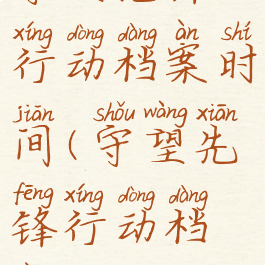 xíng dòng dàng àn shí
行动档案时
jiān shǒu wàng xiān
间(守望先
fēng xíng dòng dàng
锋行动档